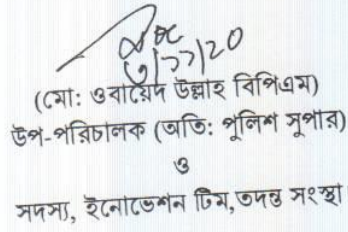 ৩/১১/২০
(মো: ওবায়েদ উল্লাহ বিপিএম)
উপ-পরিচালক (অতি: পুলিশ সুপার)
ও
সদস্য, ইনোভেশন টিম,তদন্ত সংস্থা